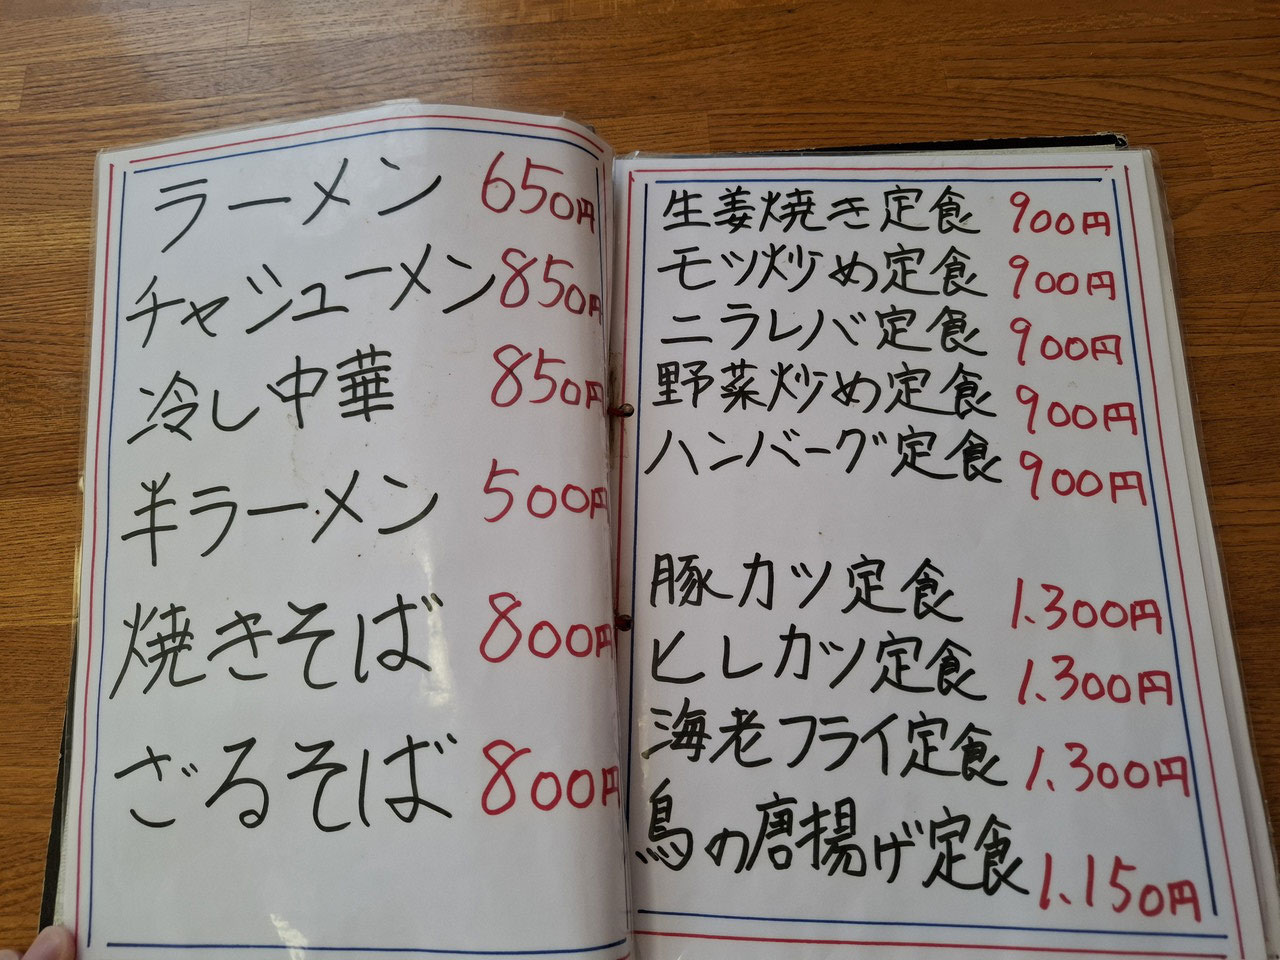 ラーメン 650円
チャシューメン 850円
冷し中華 850円
半ラーメン 500円
焼きそば 800円
ざるそば 800円
生姜焼き定食 900円
モツ炒め定食 900円
ニラレバ定食 900円
野菜炒め定食 900円
ハンバーグ定食 900円
豚カツ定食 1.300円
ヒレカツ定食 1.300円
海老フライ定食 1.300円
鳥の唐揚げ定食 1.150円